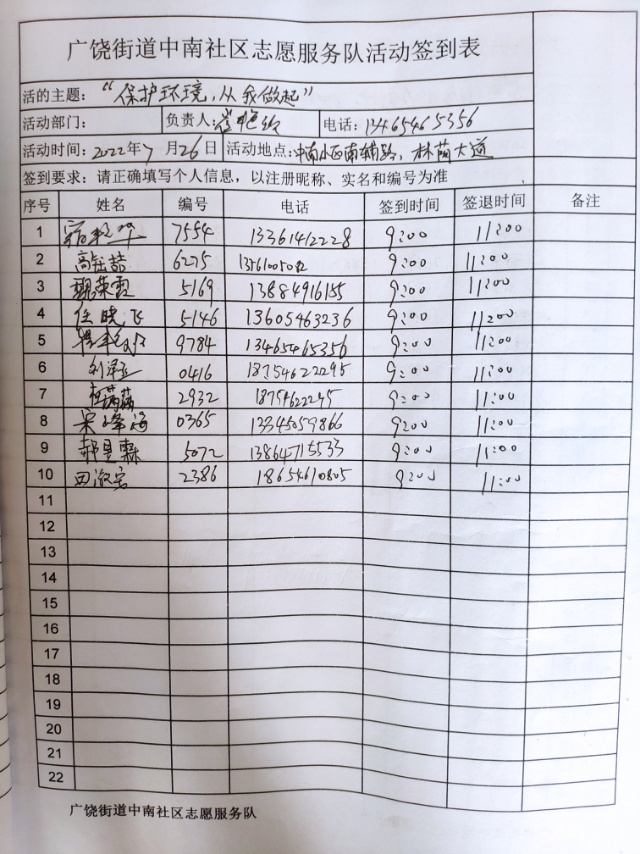 广饶街道中南社区志愿服务队活动签到表
活的主题：“保护环境，从我做起”
活动部门： 负责人： 电话：13465465356
活动时间：2022年7月26日 活动地点：中南小区南辅路，林荫大道
签到要求：请正确填写个人信息，以注册昵称、实名和编号为准
序号 姓名 编号 电话 签到时间 签退时间 备注
1 7554 13361412228 9:00 11:00
2 6275 9:00 11:00
3 魏荣霞 5169 13884916155 9:00 11:00
4 任晓飞 5146 13605463236 9:00 11:00
5 9784 13465465356 9:00 11:00
6 0416 18754622295 9:00 11:00
7 2932 9:00 11:00
8 宋峰海 0365 13345059866 9:00 11:00
9 5072 13864715533 9:00 11:00
10 田淑宾 2386 18654610805 9:00 11:00
11
12
13
14
15
16
17
18
19
20
21
22
广饶街道中南社区志愿服务队